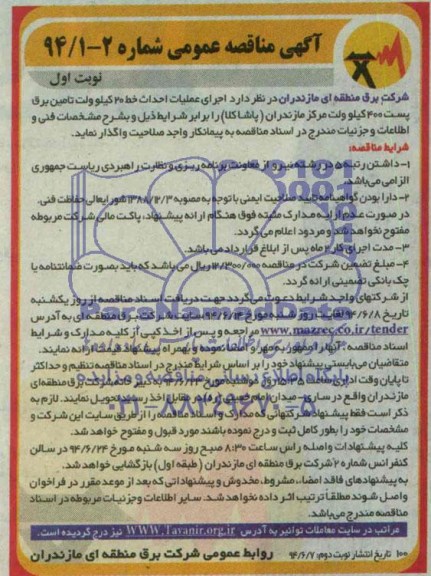 آگهی مناقصه عمومی شماره ۲-۹۴/۱
نوبت اول
شرکت برق منطقه ای مازندران در نظر دارد اجرای عملیات احداث خط ۲۰ کیلو ولت تامین برق
پست ۴۰۰ کیلو ولت مرکز مازندران (پاشاکلا) را برابر شرایط ذیل و بشرح مشخصات فنی و
اطلاعات و جزئیات مندرج در اسناد مناقصه به پیمانکار واجد صلاحیت واگذار نماید.
شرایط مناقصه:
۱- داشتن رتبه ۵ در رشته نیرو از معاونت برنامه ریزی و نظارت راهبردی ریاست جمهوری
الزامی می‌باشد.
۲- دارا بودن گواهینامه تایید صلاحیت ایمنی با توجه به مصوبه ۱۳۸۸/۱۲/۳ شورایعالی حفاظت فنی.
در صورت عدم ارایه مدارک مثبته فوق هنگام ارائه پیشنهاد، پاکت مالی شرکت مربوطه
مفتوح نخواهد شد و مردود اعلام می گردد.
۳- مدت اجرای کار ۲ ماه پس از ابلاغ قرارداد می باشد.
۴- مبلغ تضمین شرکت در مناقصه ریال می باشد که باید بصورت ضمانتنامه یا
چک بانکی تضمینی ارائه گردد.
از شرکتهای واجد شرایط دعوت می گردد جهت دریافت اسناد مناقصه از روز یکشنبه
تاریخ ۹۴/۶/۸ لغایت روز شنبه مورخ به سایت شرکت برق منطقه ای به آدرس
www.mazrec.co.ir/tender مراجعه و پس از اخذ کپی از کلیه مدارک و شرایط
اسناد مناقصه، آنها را ممهور به مهر و امضا نموده و بهمراه پیشنهاد قیمت ارائه نمایند.
متقاضیان می‌بایستی پیشنهاد خود را بر اساس شرایط مندرج در اسناد مناقصه تنظیم و حداکثر
تا پایان وقت اداری روز دوشنبه مورخ شرکت برق منطقه‌ای
مازندران واقع در ساری- میدان امام تحویل نمایند. لازم به
ذکر است فقط پیشنهاد شرکتهائی که مدارک و اسناد مناقصه را از طریق سایت این شرکت و
مشخصات خود را بطور کامل ثبت و درج نموده باشند مورد قبول و مفتوح خواهد شد.
کلیه پیشنهادات واصله راس ساعت ۸:۳۰ صبح روز سه شنبه مورخ ۹۴/۶/۲۴ در سالن
کنفرانس شماره ۲ شرکت برق منطقه ای مازندران (طبقه اول) بازگشایی خواهد شد.
به پیشنهادهای فاقد امضاء، مشروط، مخدوش و پیشنهاداتی که بعد از موعد مقرر در فراخوان
واصل شوند مطلقا ترتیب اثر داده نخواهد شد. سایر اطلاعات و جزئیات مربوطه در اسناد
مناقصه مندرج می‌باشد.
مراتب در سایت معاملات توانیر به آدرس WWW.Tavanir.org.ir نیز درج گردیده است.
۱۰۰ تاریخ انتشار نوبت دوم: ۹۴/۶/۷ روابط عمومی شرکت برق منطقه ای مازندران